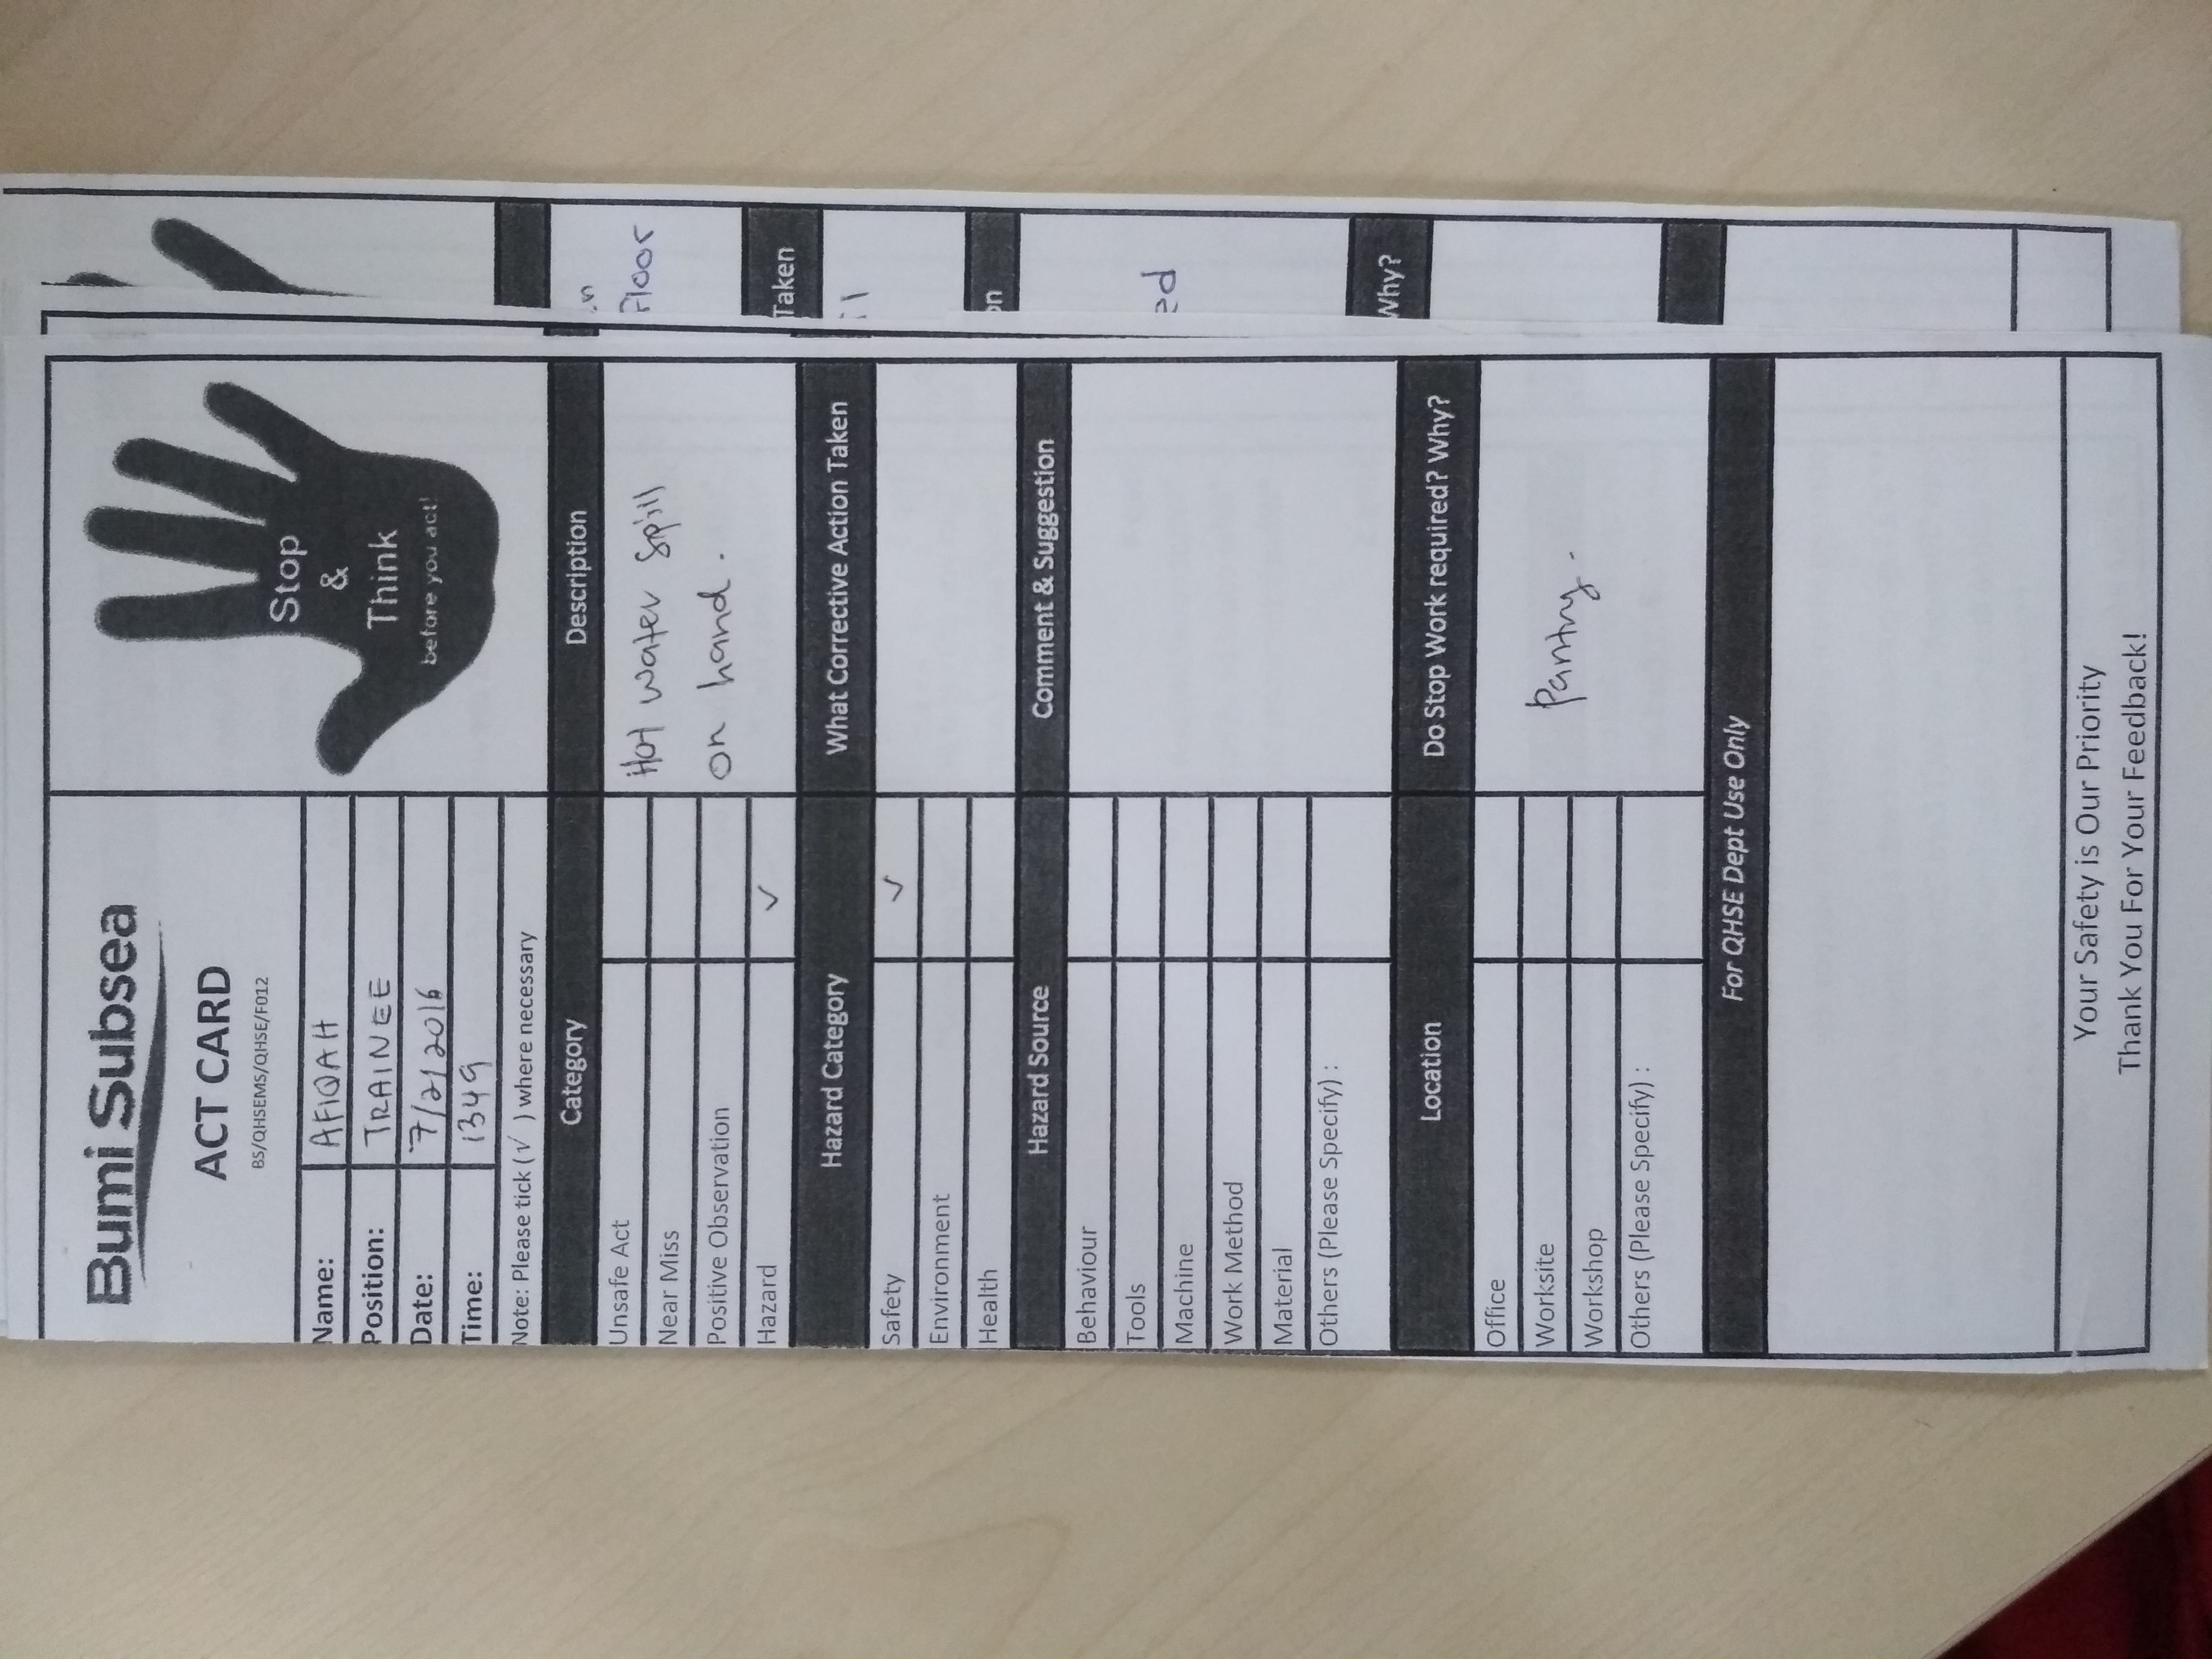 Bumi Subsea
ACT CARD
BS/QHSEMS/QHSE/F012
Stop
&
Think
before you act!
Name: AFIQAH
Position: TRAINEE
Date: 7/2/2016
Time: 1349
Note: Please tick (√ ) where necessary
Category Description
Unsafe Act Hot water spill
Near Miss
Positive Observation on hand.
Hazard ✓
Hazard Category What Corrective Action Taken
Safety ✓
Environment
Health
Hazard Source Comment & Suggestion
Behaviour
Tools
Machine
Work Method
Material
Others (Please Specify) :
Location Do Stop Work required? Why?
Office
Worksite Pantry.
Workshop
Others (Please Specify) :
For QHSE Dept Use Only
Your Safety is Our Priority
Thank You For Your Feedback!
Floor
Taken
on
ed
Why?